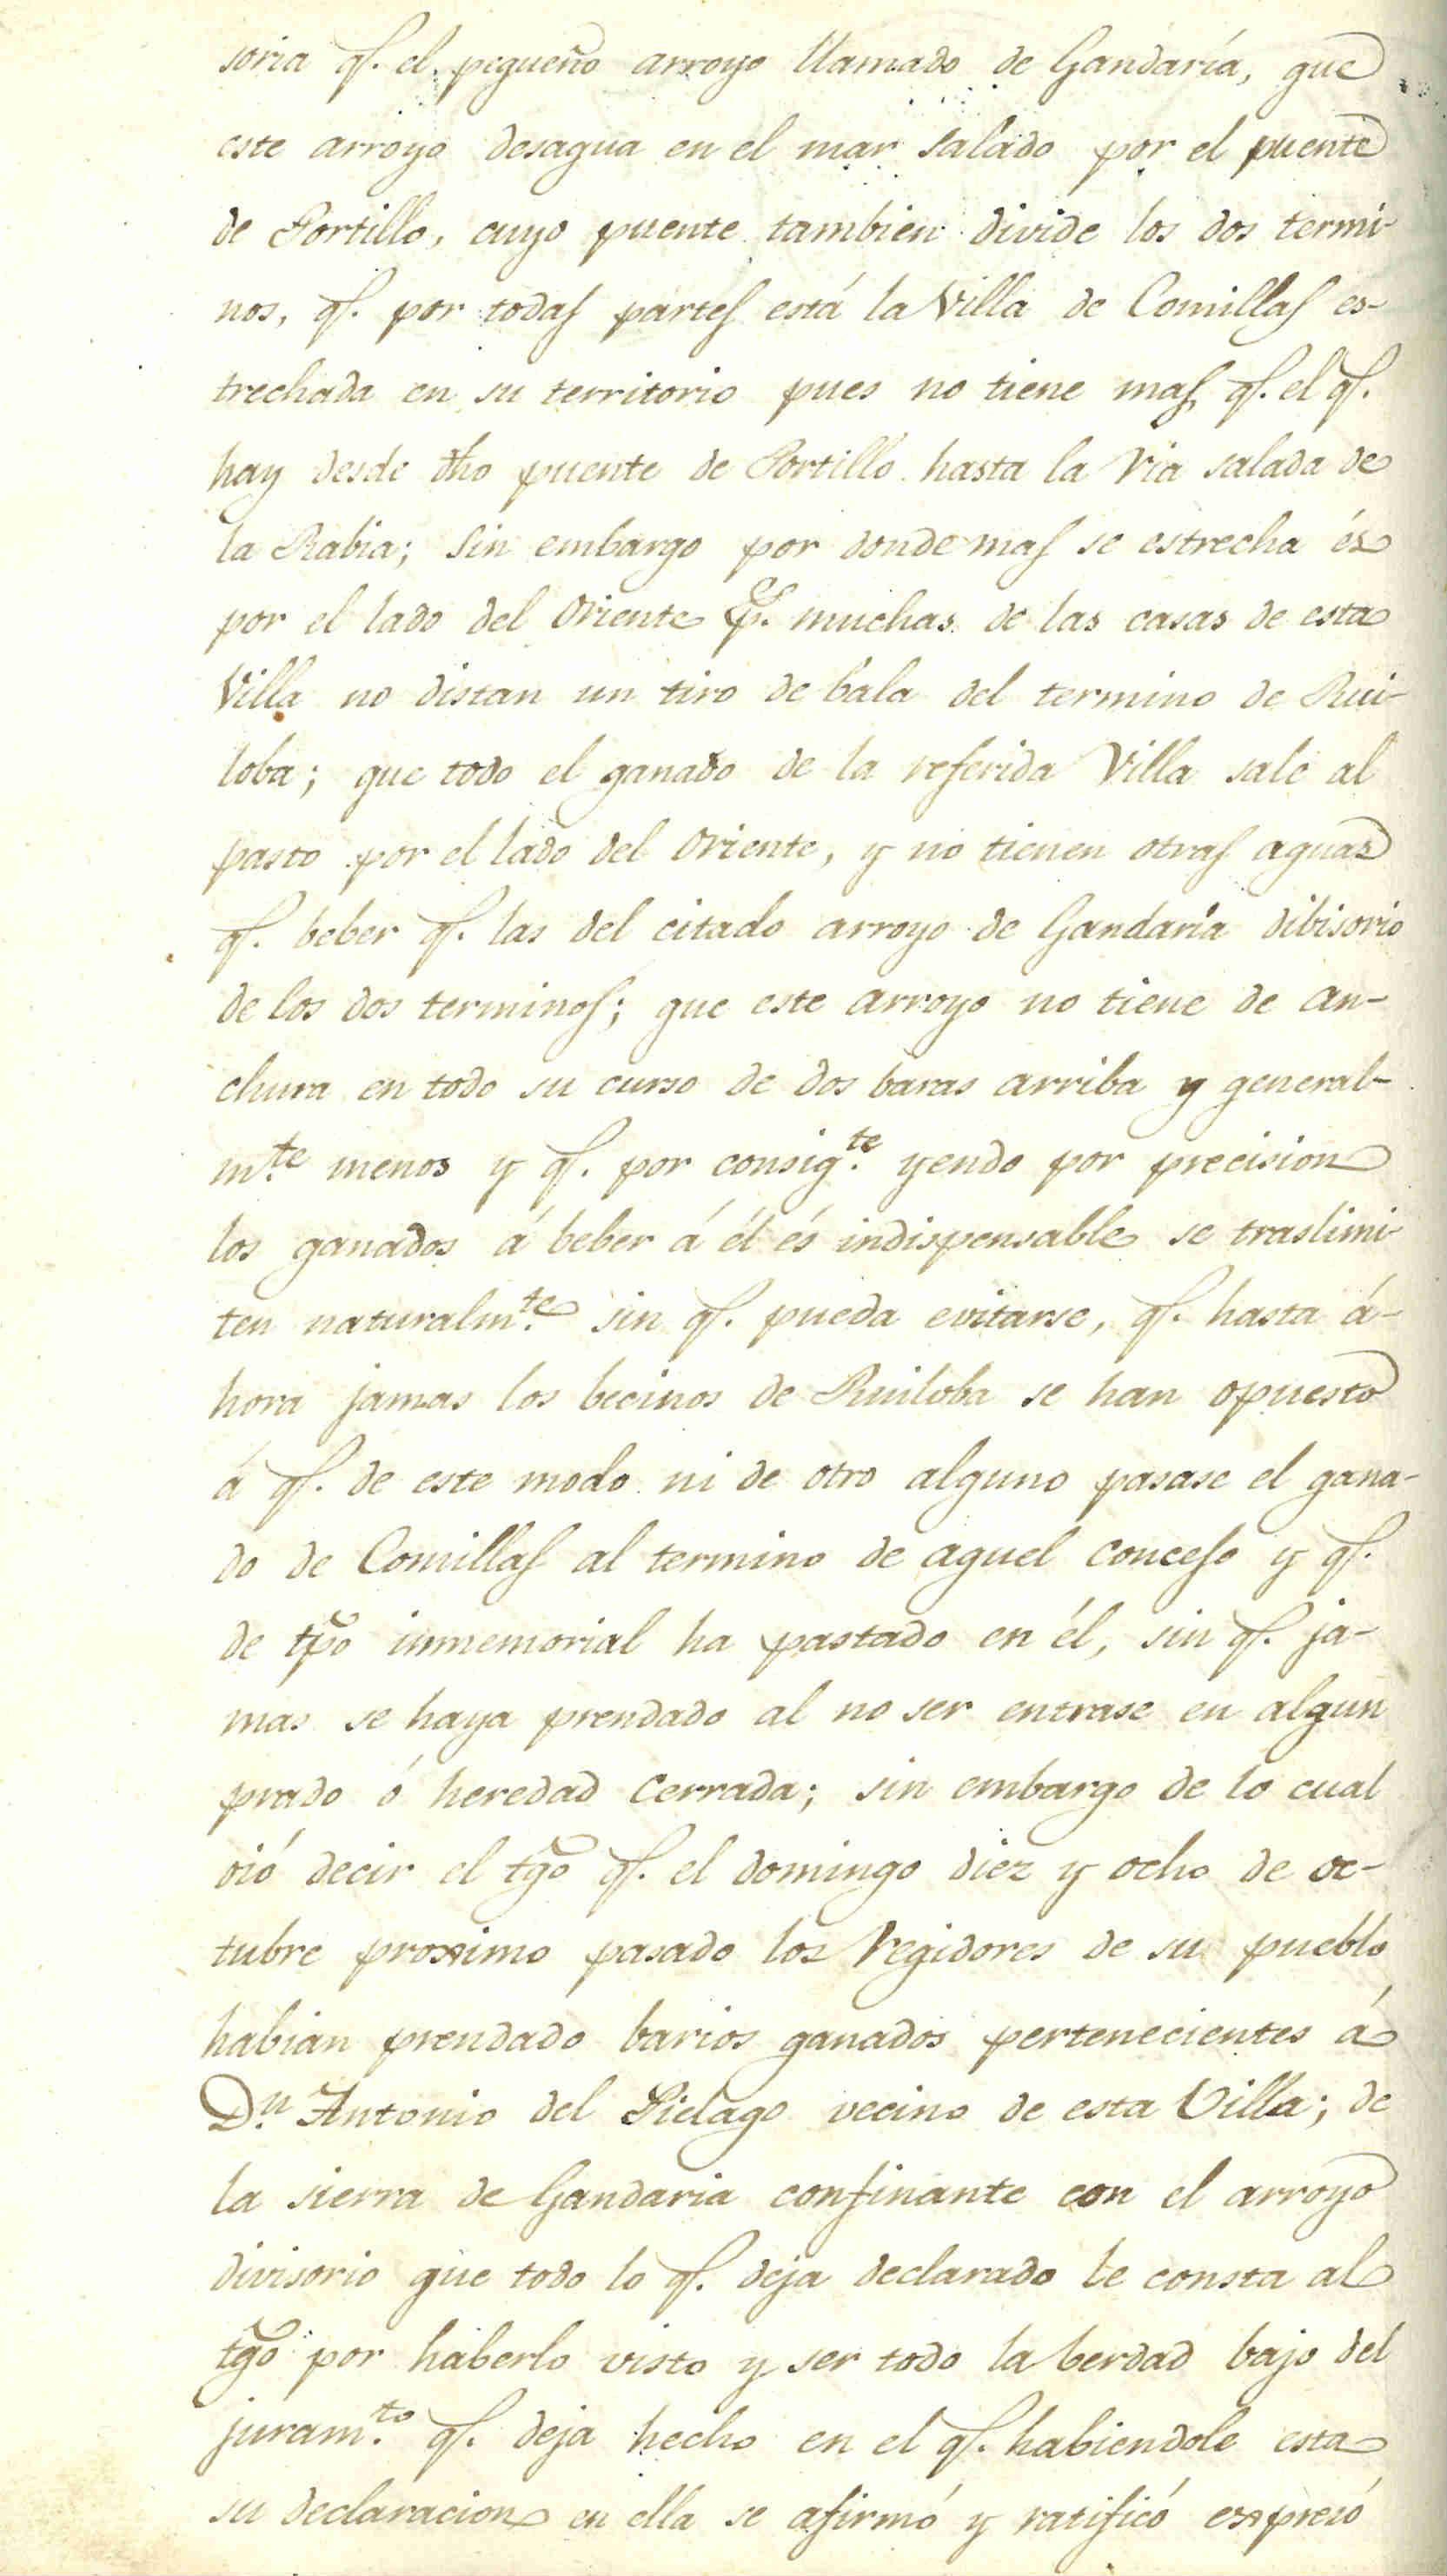 soria q.e el pequeño arroyo llamado de Gandaría, que
este arroyo desagua en el mar salado por el puente
de Portillo, cuyo puente tambien divide los dos termi-
nos, q.e por todas partes está la Villa de Comillas es-
trechada en su territorio pues no tiene mas q.e el q.e
hay desde dho puente de Portillo hasta la ria salada de
la Rabia; sin embargo por donde mas se estrecha és
por el lado del Oriente q.e muchas de las casas de esta
Villa no distan un tiro de bala del termino de Rui-
loba; que todo el ganado de la referida Villa sale al
pasto por el lado del Oriente, y no tienen otras aguas
q.e beber q.e las del citado arroyo de Gandaría dibisorio
de los dos terminos; que este arroyo no tiene de an-
chura en todo su curso de dos baras arriba y general-
m.te menos y q.e por consig.te yendo por precision
los ganados á beber á él és indispensable se traslimi-
ten naturalm.te sin q.e pueda evitarse, q.e hasta á-
hora jamas los becinos de Ruiloba se han opuesto
á q.e de este modo ni de otro alguno pasase el gana-
do de Comillas al termino de aquel concejo y q.e
de tpõ inmemorial ha pastado en él, sin q.e ja-
mas se haya prendado al no ser entrase en algun
prado ó heredad cerrada; sin embargo de lo cual
oió decir el tgõ q.e el domingo diez y ocho de oc-
tubre proximo pasado los Regidores de su pueblo
habian prendado barios ganados pertenecientes á
D.n Antonio del Pielago vecino de esta Villa; de
la sierra de Gandaria confinante con el arroyo
divisorio que todo lo q.e deja declarado le consta al
tgõ por haberlo visto y ser todo la berdad bajo del
juram.to q.e deja hecho en el q.e habiendole esta
su declaracion en ella se afirmó y ratificó expresó